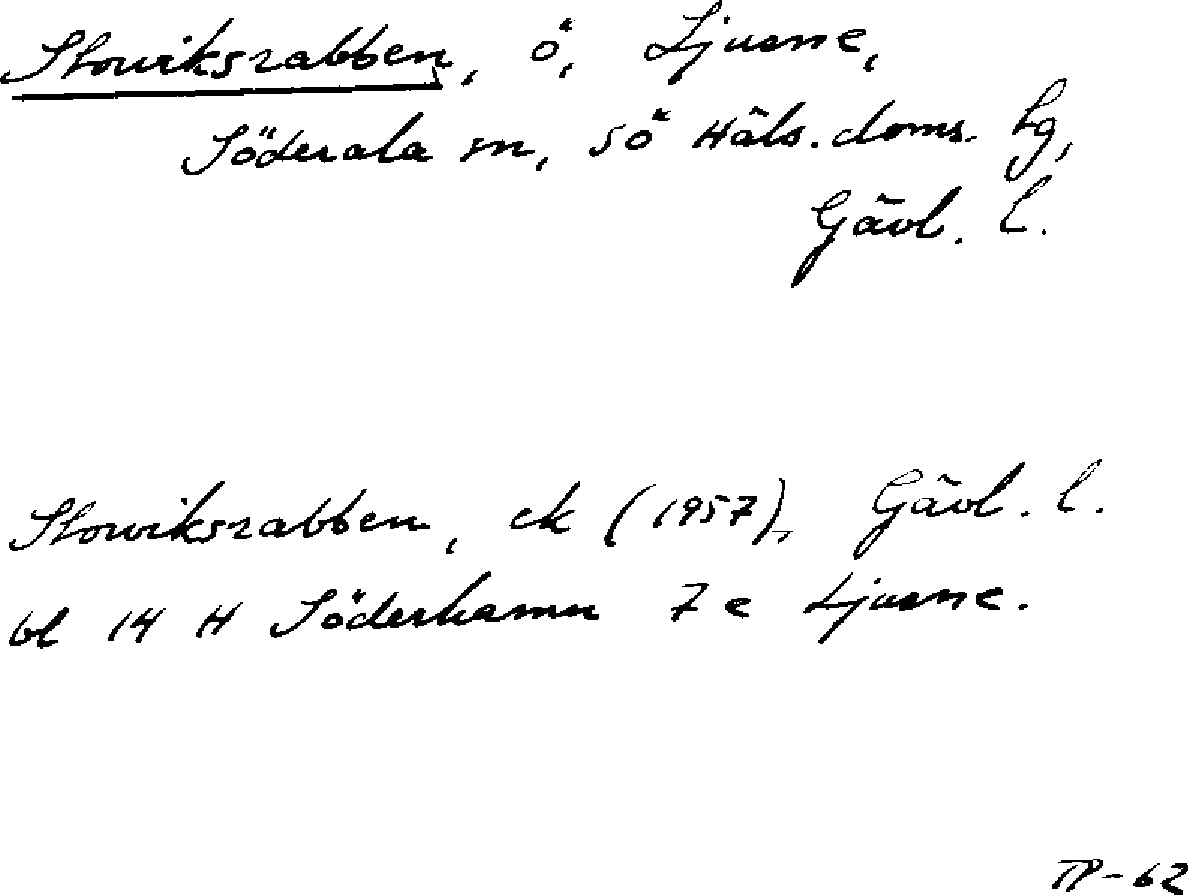 Storviksrabben, ö, Ljusne,
Söderala sn, sö Häls. doms. tg,
Gävl. l.
Storviksrabben, ek (1957), Gävl. l.
bl 14 H Söderhamn 7 e Ljusne.
TP-62